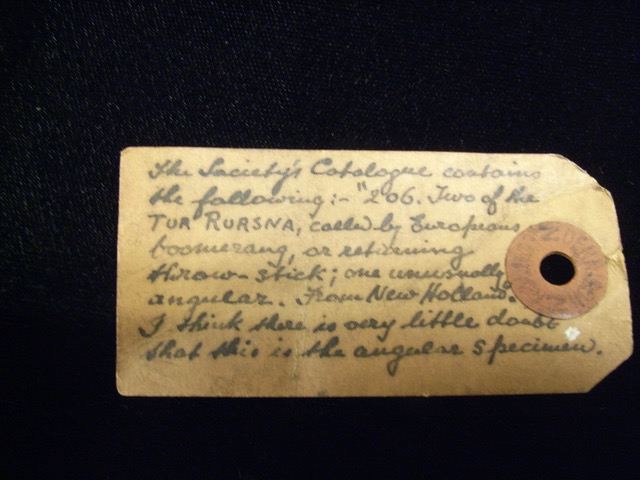 The Society's Catalogue contains
the following:- "206. Two of the
TUR RURSNA, called by Europeans
boomerang, or returning
throw-stick; one unusually
angular. From New Holland."
I think there is very little doubt
that this is the angular specimen.